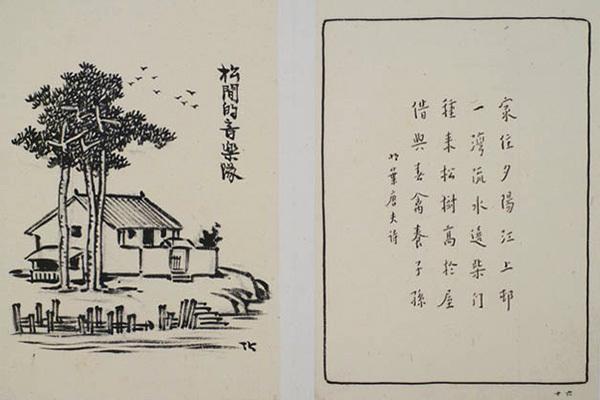 松間的音樂隊
TK
家住夕陽江上邨
一灣流水遶柴门
種来松樹高於屋
借與春禽養子孫
明葉唐夫诗
十六